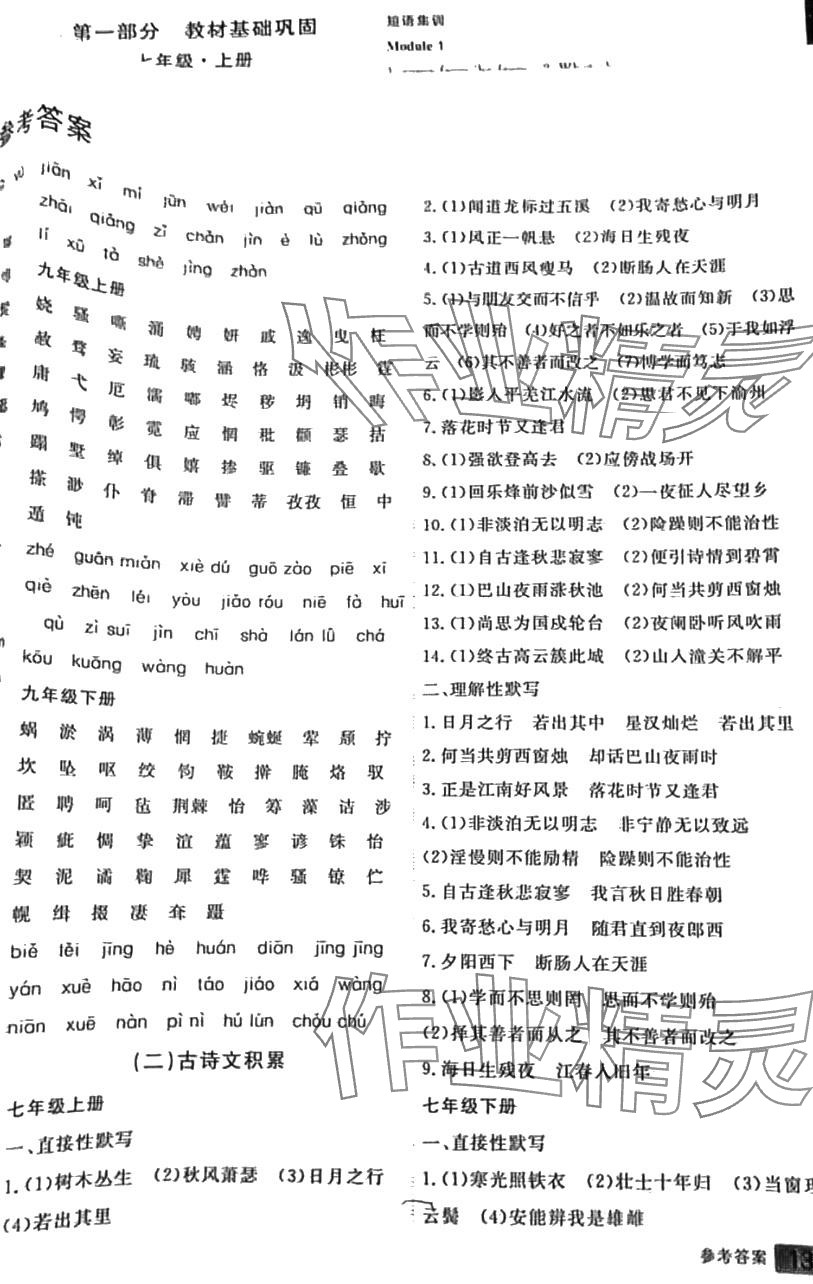 第一部分 教材基础巩固
年级·上册
短语集训
Module 1
参考答案
jiān xǐ mí jūn wèi jiàn qū qiǎng
zhāi qiǎng zǐ chǎn jìn è lù zhǒng
lí xū tà shè jìng zhàn
九年级上册
娆 骚 嘶 涌 娉 妍 戚 逸 曳 枉
赦 骛 妄 琉 骇 涵 恪 汲 彬彬 霆
庸 弋 厄 濡 嘟 烬 秽 坍 销 晦
鸠 愕 彰 霓 应 惘 枇 颤 瑟 拮
蹋 墅 绰 俱 嬉 掺 驱 镰 叠 歇
搽 渺 仆 脊 滞 臂 蒂 孜孜 恒 中
遁 钝
zhé guān miǎn xiè dú guō zào piē xī
qiè zhēn léi yòu jiǎo róu niē fà huī
qù zì suī jìn chī shà lán lǚ chá
kōu kuǎng wàng huàn
九年级下册
蜗 淤 涡 薄 惘 捷 蜿蜒 荤 颓 拧
坎 坠 呕 绞 钧 鞍 擀 腌 烙 驭
匿 聘 呵 毡 荆棘 怡 筹 藻 诘 涉
颖 疵 惆 挚 渲 蕴 寥 谚 铢 怡
契 泥 谲 鞠 犀 霆 哗 骚 镣 伫
幌 缉 掇 凄 奄 蹑
biě lěi jīng hè huán diān jīng jīng
yán xuè hāo nì táo jiáo xiá wàng
niān xuē nàn pì nì hú lùn chóu chú
(二)古诗文积累
七年级上册
一、直接性默写
1.(1)树木丛生 (2)秋风萧瑟 (3)日月之行
(4)若出其里
2.(1)闻道龙标过五溪 (2)我寄愁心与明月
3.(1)风正一帆悬 (2)海日生残夜
4.(1)古道西风瘦马 (2)断肠人在天涯
5.(1)与朋友交而不信乎 (2)温故而知新 (3)思
而不学则殆 (4)好之者不如乐之者 (5)于我如浮
云 (6)其不善者而改之 (7)博学而笃志
6.(1)峨眉山月半轮秋 (2)思君不见下渝州
7.落花时节又逢君
8.(1)强欲登高去 (2)应傍战场开
9.(1)回乐烽前沙似雪 (2)一夜征人尽望乡
10.(1)非淡泊无以明志 (2)险躁则不能治性
11.(1)自古逢秋悲寂寥 (2)便引诗情到碧霄
12.(1)巴山夜雨涨秋池 (2)何当共剪西窗烛
13.(1)尚思为国戍轮台 (2)夜阑卧听风吹雨
14.(1)终古高云簇此城 (2)山入潼关不解平
二、理解性默写
1.日月之行 若出其中 星汉灿烂 若出其里
2.何当共剪西窗烛 却话巴山夜雨时
3.正是江南好风景 落花时节又逢君
4.(1)非淡泊无以明志 非宁静无以致远
(2)淫慢则不能励精 险躁则不能治性
5.自古逢秋悲寂寥 我言秋日胜春朝
6.我寄愁心与明月 随君直到夜郎西
7.夕阳西下 断肠人在天涯
8.(1)学而不思则罔 思而不学则殆
(2)择其善者而从之 其不善者而改之
9.海日生残夜 江春入旧年
七年级下册
一、直接性默写
1.(1)寒光照铁衣 (2)壮士十年归 (3)当窗理
云鬓 (4)安能辨我是雄雌
参考答案
作业精灵
作业精灵